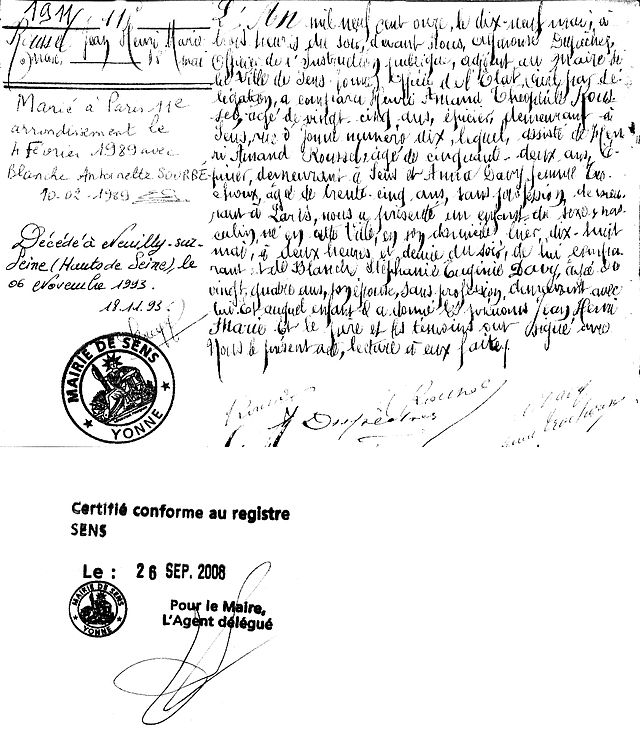 1911
Roussel Jean Henri Marie
Marié à Paris 11e
arrondissement le
4 Février 1989 avec
Blanche Antoinette SOURBÉ
10.02.1989
Décédé à Neuilly-sur-
Seine (Hauts de Seine), le
06 Novembre 1993.
18.11.93.
MAIRIE DE SENS
YONNE
L'An mil neuf cent onze, le dix-neuf mai, à
trois heures du soir, devant Nous,
Officier de l'Instruction publique, adjoint au Maire de
la Ville de Sens, Officier de l'Etat Civil par dé-
légation, a comparu Amand Théophile Rous-
sel, âgé de vingt cinq ans, épicier, demeurant à
Sens, rue d' Yonne numéro dix, lequel, assisté de Hen-
ri Amand Roussel, âgé de cinquante-deux ans, é-
picier, demeurant à Sens et Anna Davy, femme
âgée de trente-cinq ans, sans profession, demeu-
rant à Paris, nous a présenté un enfant du sexe mas-
culin, né en cette Ville, en son domicile hier, dix-huit
mai, à deux heures et demie du soir, de lui compa-
rant et de Blanche, Stéphanie Eugénie Davy, âgée de
vingt-quatre ans, son épouse, sans profession, demeurant avec
lui et auquel enfant il a donné les prénoms Jean, Henri
Marie Et le père et les témoins ont signé avec
Nous le présent acte, lecture à eux faite
Certifié conforme au registre
SENS
Le : 26 SEP. 2008
MAIRIE DE SENS
YONNE
Pour le Maire,
L'Agent délégué